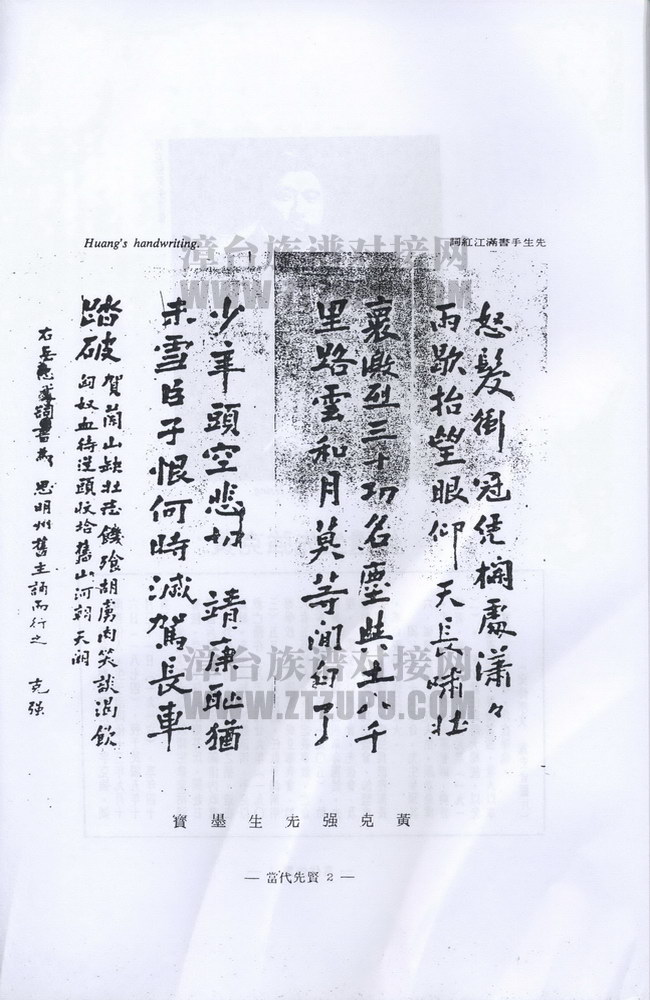 Huang's handwriting.
先生手書滿江紅詞
怒髮衝冠凭欄處瀟々
雨歇抬望眼仰天長嘯壯
裏激烈三十功名塵與土八千
里路雲和月莫等閒白了
少年頭空悲切 靖康恥猶
未雪臣子恨何時滅駕長車
踏破賀蘭山缺壯志饑飡胡虜肉笑談渴飲
匈奴血待從頭收拾舊山河朝天闕
右岳 思明州舊主誦而行之 克强
黃克强先生墨寶
— 當代先賢 2 —
漳台族谱对接网
WWW.ZTZUPU.COM
漳台族谱对接网
WWW.ZTZUPU.COM